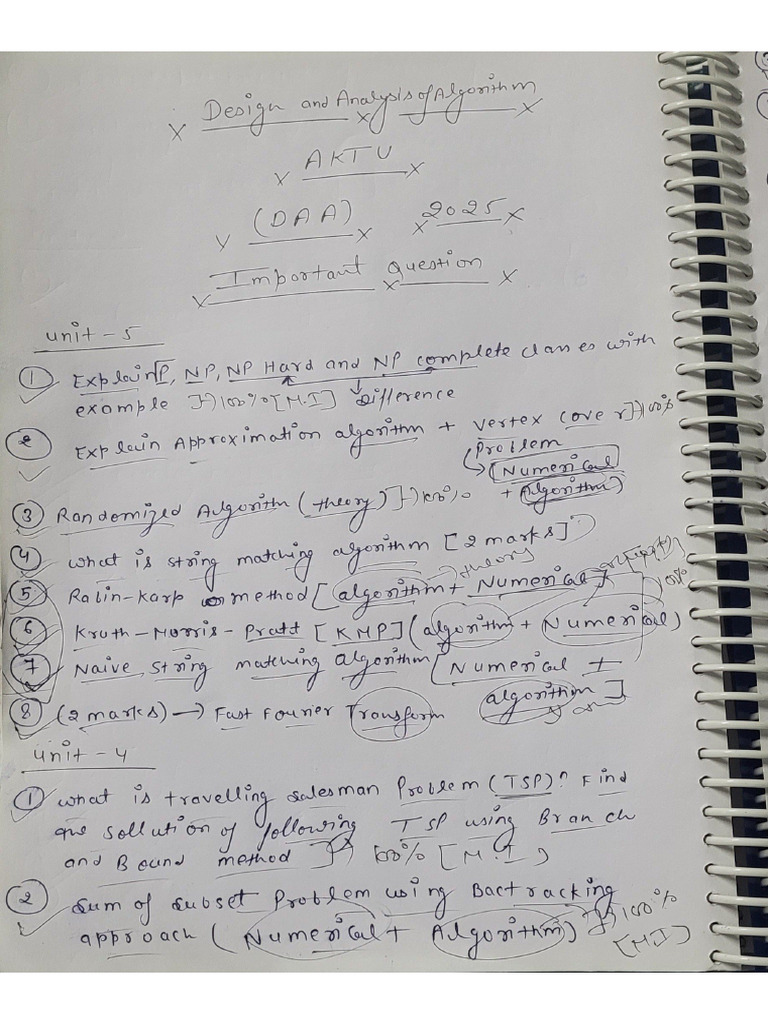 Design and Analysis of Algorithm
AKTU
(DAA) 2025
Important Question
Unit - 5
① Explain P, NP, NP Hard and NP complete classes with
example }→100% [M.I] Difference
② Explain Approximation algorithm + Vertex Cover }→100%
Problem
→ (Numerical
+ Algorithm)
③ Randomized Algorithm (theory) }→100%
④ What is string matching algorithm [2 marks]
⑤ Rabin-Karp method [algorithm + Numerical]
→theory
100%
⑥ Knuth-Morris-Pratt [KMP] (algorithm + Numerical)
⑦ Naive String matching Algorithm [Numerical +
algorithm]
⑧ (2 marks) → Fast Fourier Transform
Unit - 4
① What is travelling Salesman Problem (TSP)? Find
the sollution of following TSP using Branch
and Bound method }→ 100% [M.I]
② Sum of subset Problem using Backtracking
approach (Numerical + Algorithm) }→100%
[M.I]